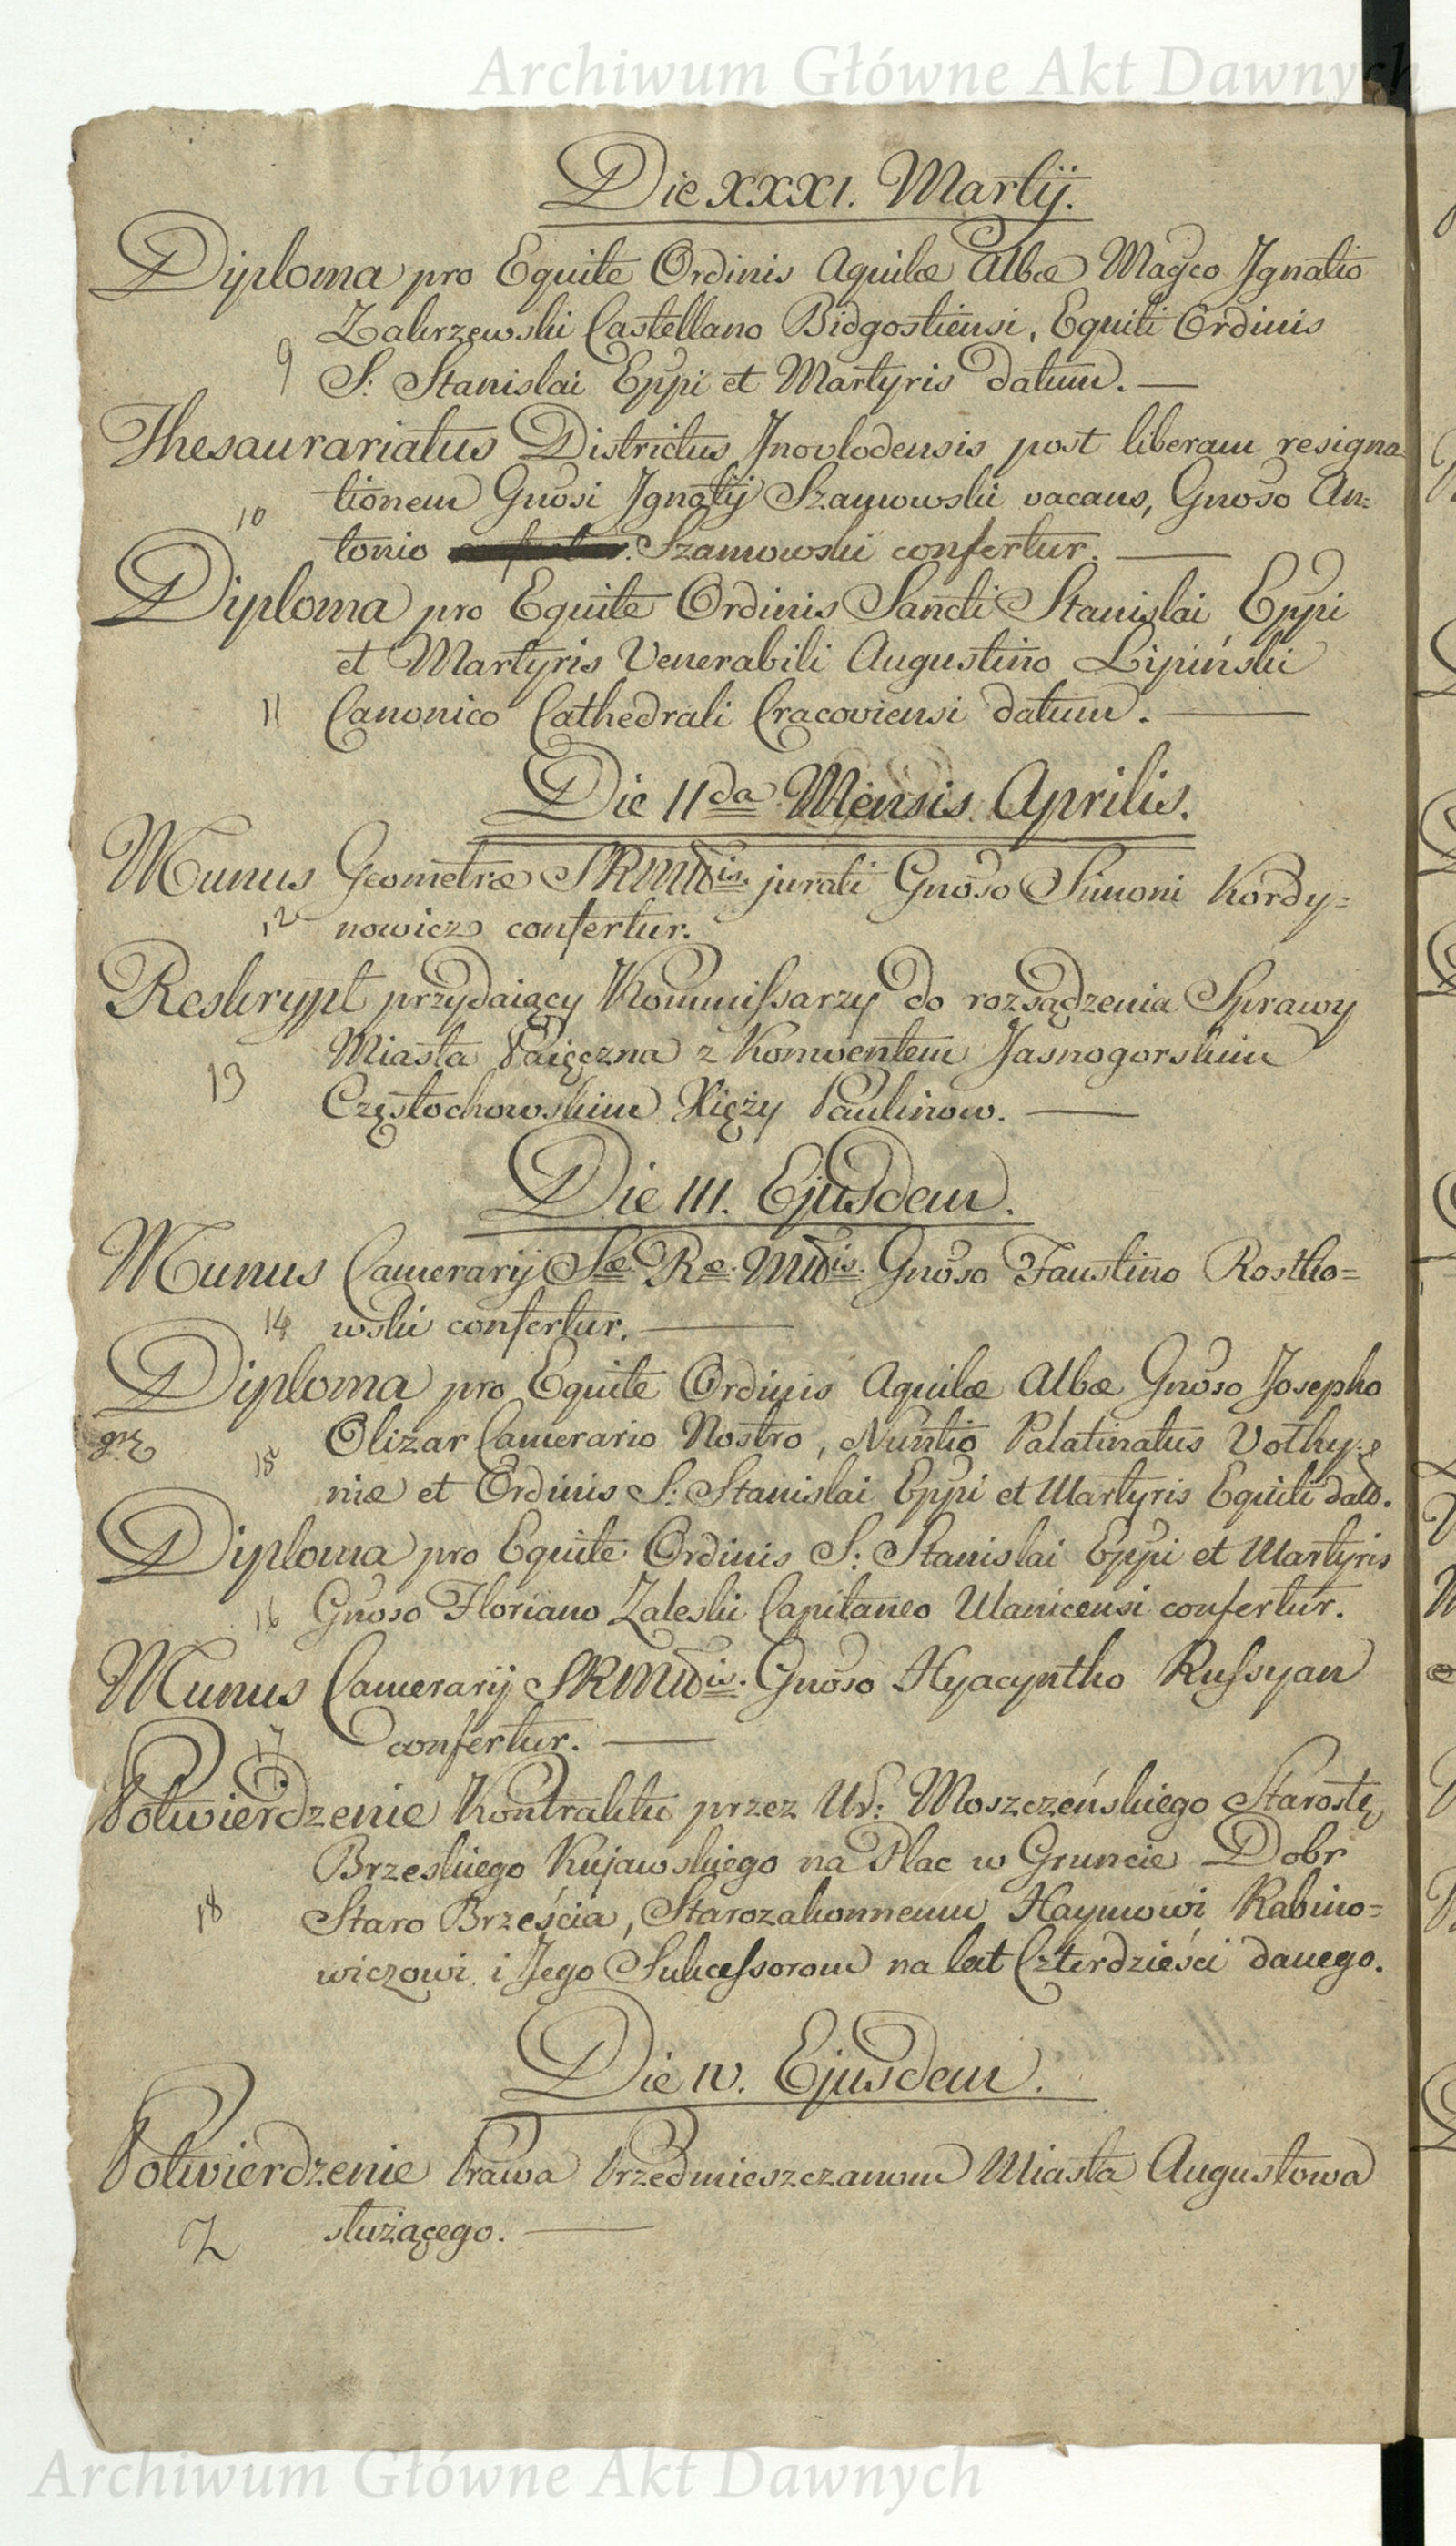 Archiwum Główne Akt Dawnych
Die XXXI. Martij.
Diploma pro Equite Ordinis Aquilæ Albæ Magco Jgnatio
Zakrzewski Castellano Bidgostiensi, Equiti Ordinis
9 S: Stanislai Eppi et Martyris datum. —
Thesaurariatus Districtus Jnovlodensis post liberam resigna-
tionem Gnosi Jgnatij Szamowski vacans, Gnoso An=
10 tonio Szamowski confertur. —
Diploma pro Equite Ordinis Sancti Stanislai Eppi
et Martyris Venerabili Augustino Lipiński
11 Canonico Cathedrali Cracoviensi datum. —
Die IIda Mensis Aprilis.
Munus Geometræ SRMttis jurati Gnoso Simoni Kordy=
12 nowicz confertur.
Reskrypt przydaiący Kommissarzy do rozsądzenia Sprawy
Miasta Paięczna z Konwentem Jasnogorskim
13 Częstochowskim Xięży Paulinow. —
Die III. Ejusdem.
Munus Camerarij Sæ Ræ Mttis Gnoso Faustino Rostko=
14 wski confertur. —
Diploma pro Equite Ordinis Aquilæ Albæ Gnoso Josepho
15 Olizar Camerario Nostro, Nuntio Palatinatus Volhy=
niæ et Ordinis S: Stanislai Eppi et Martyris Equiti dato.
Diploma pro Equite Ordinis S: Stanislai Eppi et Martyris
16 Gnoso Floriano Zaleski Capitaneo Ulanicensi confertur.
Munus Camerarij SRMttis. Gnoso Hyacyntho Russyan
17 confertur. —
Potwierdzenie Kontraktu przez Ur: Moszczeńskiego Starostę
Brzeskiego Kujawskiego na Plac w Gruncie Dobr
18 Staro Brześcia, Starozakonnemu Haymowi Rabino=
wiczowi i Jego Sukcessorom na lat Czterdzieści danego.
Die IV. Ejusdem.
Potwierdzenie Prawa Przedmieszczanom Miasta Augustowa
służącego. —
Archiwum Główne Akt Dawnych